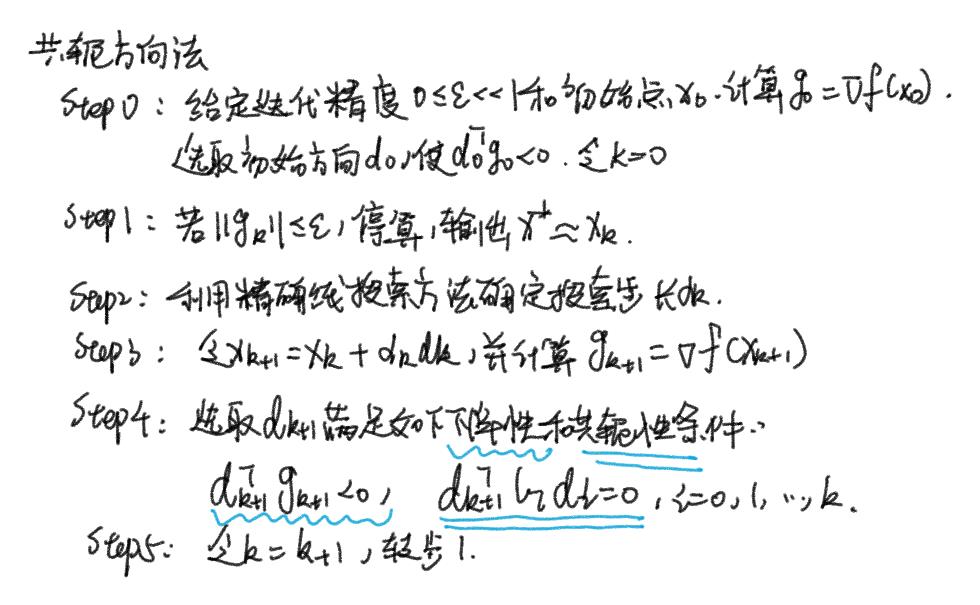 共轭方向法
Step 0：给定迭代精度 0≤ε<<1和初始点x₀. 计算g₀=∇f(x₀).
选取初始方向d₀,使d₀ᵀg₀<0. 令k=0
Step 1：若||gₖ||≤ε, 停算, 输出x*≈xₖ.
Step2：利用精确线搜索方法确定搜索步长αₖ.
Step3：令xₖ₊₁=xₖ+αₖdₖ, 并计算 gₖ₊₁=∇f(xₖ₊₁)
Step4：选取dₖ₊₁满足如下下降性和共轭性条件:
dₖ₊₁ᵀgₖ₊₁<0, dₖ₊₁ᵀGdᵢ=0, i=0,1,…,k.
Step5：令k=k+1, 转步1.